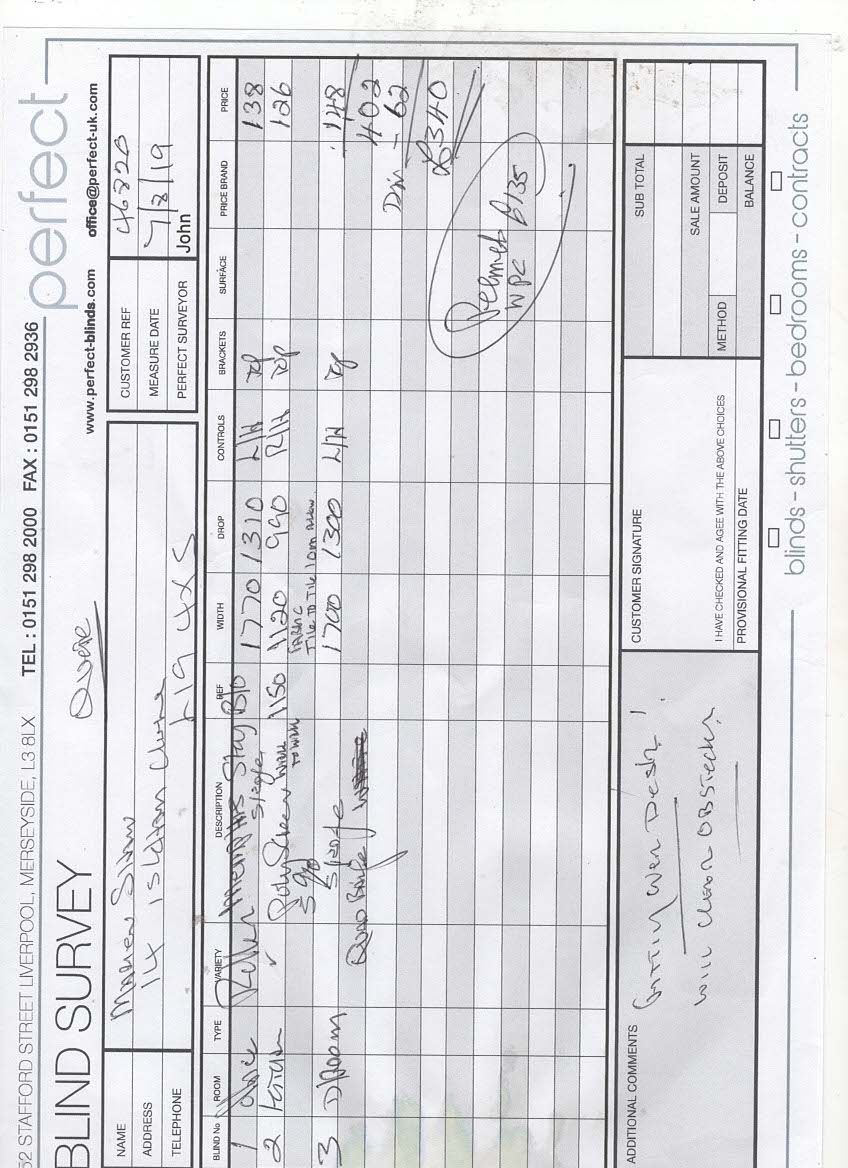 52 STAFFORD STREET LIVERPOOL, MERSEYSIDE, L3 8LX TEL : 0151 298 2000 FAX : 0151 298 2936
perfect
BLIND SURVEY
www.perfect-blinds.com office@perfect-uk.com
NAME
ADDRESS 14
TELEPHONE L19 4XS
CUSTOMER REF 46820
MEASURE DATE 7/8/19
PERFECT SURVEYOR John
BLIND No ROOM TYPE VARIETY DESCRIPTION REF WIDTH DROP CONTROLS BRACKETS SURFACE PRICE BRAND PRICE
1 Office Roller Memphis B/O 1770 1310 L/H T/F 138
Single
2 Kitchen 1150 1120 990 R/H 126
FABRIC
TILE TO TILE 10m
3 D/Room Single 1700 1300 L/H T/F 148
402
Dis - 62
£340
Pelmet £135
WPC
ADDITIONAL COMMENTS
Fitting over Desk!
will clear OBSTECLES
CUSTOMER SIGNATURE
I HAVE CHECKED AND AGEE WITH THE ABOVE CHOICES
PROVISIONAL FITTING DATE
SUB TOTAL
SALE AMOUNT
METHOD DEPOSIT
BALANCE
blinds - shutters - bedrooms - contracts